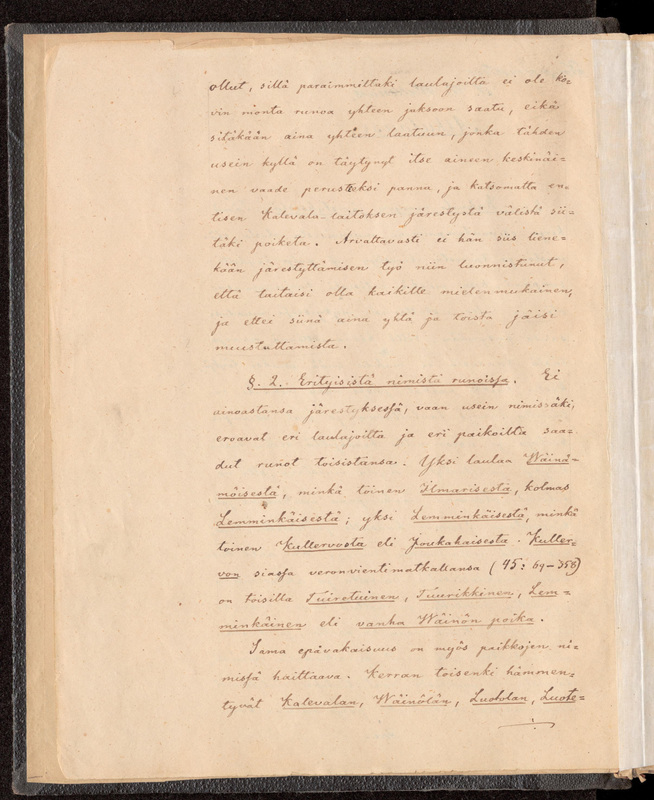 ollut, sillä paraimmiltaki laulajoilta ei ole ko-
vin monta runoa yhteen juksoon saatu, eikä
sitäkään aina yhteen laatuun, jonka tähden
usein kyllä on täytynyt itse aineen keskinäi-
nen vaade perusteeksi panna, ja katsomatta en-
tisen Kalevala-laitoksen järestystä välistä sii-
täki poiketa. Arvattavasti ei hän siis liene-
kään järestyttämisen työ niin luonnistunut,
että taitaisi olla kaikille mielen mukainen,
ja ettei siinä aina yhtä ja toista jäisi
muistuttamista.
§. 2. Erityisistä nimistä runoissa. Ei
ainoastansa järestyksessä, vaan usein nimissäki,
eroavat eri laulajoilta ja eri paikoilta saa-
dut runot toisistansa. Yksi laulaa Wäinä-
möisestä, minkä toinen Ilmarisesta, kolmas
Lemminkäisestä; yksi Lemminkäisestä, minkä
toinen Kullervosta eli Joukahaisesta. Kuller-
von siassa veronvientimatkallansa (45: 69-358)
on toisilla Tuiretuinen, Tuurikkinen, Lem-
minkäinen eli vanha Wäinön poika.
Sama epävakaisuus on myös paikkojen ni-
missä haittaava. Kerran toisenki hämmen-
tyvät Kalevalan, Wäinölän, Luotolan, Luote-